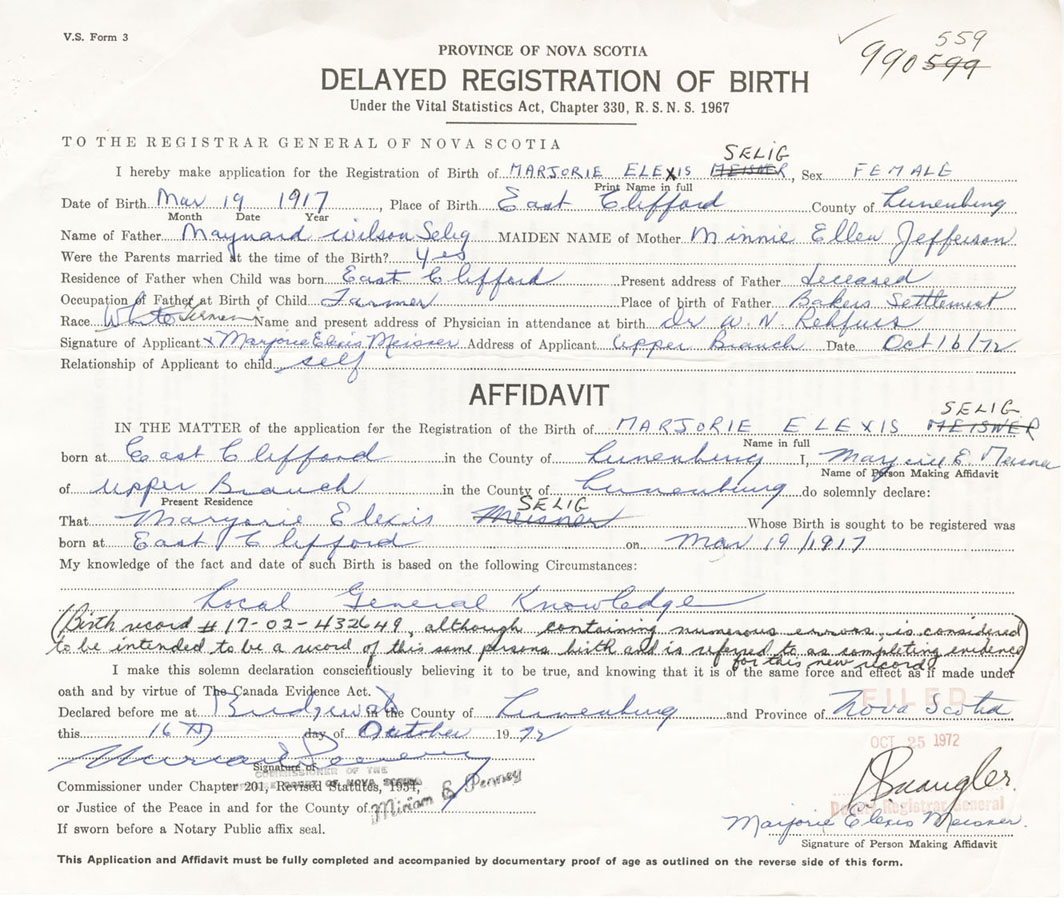 V.S. Form 3
559
990 599
PROVINCE OF NOVA SCOTIA
DELAYED REGISTRATION OF BIRTH
Under the Vital Statistics Act, Chapter 330, R. S. N. S. 1967
TO THE REGISTRAR GENERAL OF NOVA SCOTIA
SELIG
I hereby make application for the Registration of Birth of MARJORIE ELEXIS MEISNER, Sex FEMALE
Print Name in full
Date of Birth Mar 19 1917, Place of Birth East Clifford County of Lunenburg
Month Date Year
Name of Father Maynard Wilson Selig MAIDEN NAME of Mother Minnie Ellen Jefferson
Were the Parents married at the time of the Birth? yes
Residence of Father when Child was born East Clifford Present address of Father deceased
Occupation of Father at Birth of Child Farmer Place of birth of Father Bakers Settlement
Race White German Name and present address of Physician in attendance at birth Dr W. N. Rehfuss
Signature of Applicant x Marjorie Elexis Meisner Address of Applicant Upper Branch Date Oct 16/72
Relationship of Applicant to child self
AFFIDAVIT
SELIG
IN THE MATTER of the application for the Registration of the Birth of MARJORIE ELEXIS MEISNER
Name in full
born at East Clifford in the County of Lunenburg I, Marjorie E. Meisner
Name of Person Making Affidavit
of Upper Branch in the County of Lunenburg do solemnly declare:
Present Residence
SELIG
That Marjorie Elexis Meisner Whose Birth is sought to be registered was
born at East Clifford on Mar 19/1917
My knowledge of the fact and date of such Birth is based on the following Circumstances:
Local General Knowledge
(Birth record # 17-02-432649, although containing numerous errors, is considered
to be intended to be a record of this same persons birth and is referred to as completing evidence
for this new record)
I make this solemn declaration conscientiously believing it to be true, and knowing that it is of the same force and effect as if made under
oath and by virtue of The Canada Evidence Act.
FILED
Declared before me at Bridgewater in the County of Lunenburg and Province of Nova Scotia
this 16th day of October 1972
OCT 25 1972
Signature of
COMMISSIONER OF THE
Commissioner under Chapter 201, Revised Statutes, 1954,
SUPREME COURT OF NOVA SCOTIA
or Justice of the Peace in and for the County of Miriam E Penney
Deputy Registrar General
If sworn before a Notary Public affix seal.
Marjorie Elexis Meisner.
Signature of Person Making Affidavit
This Application and Affidavit must be fully completed and accompanied by documentary proof of age as outlined on the reverse side of this form.